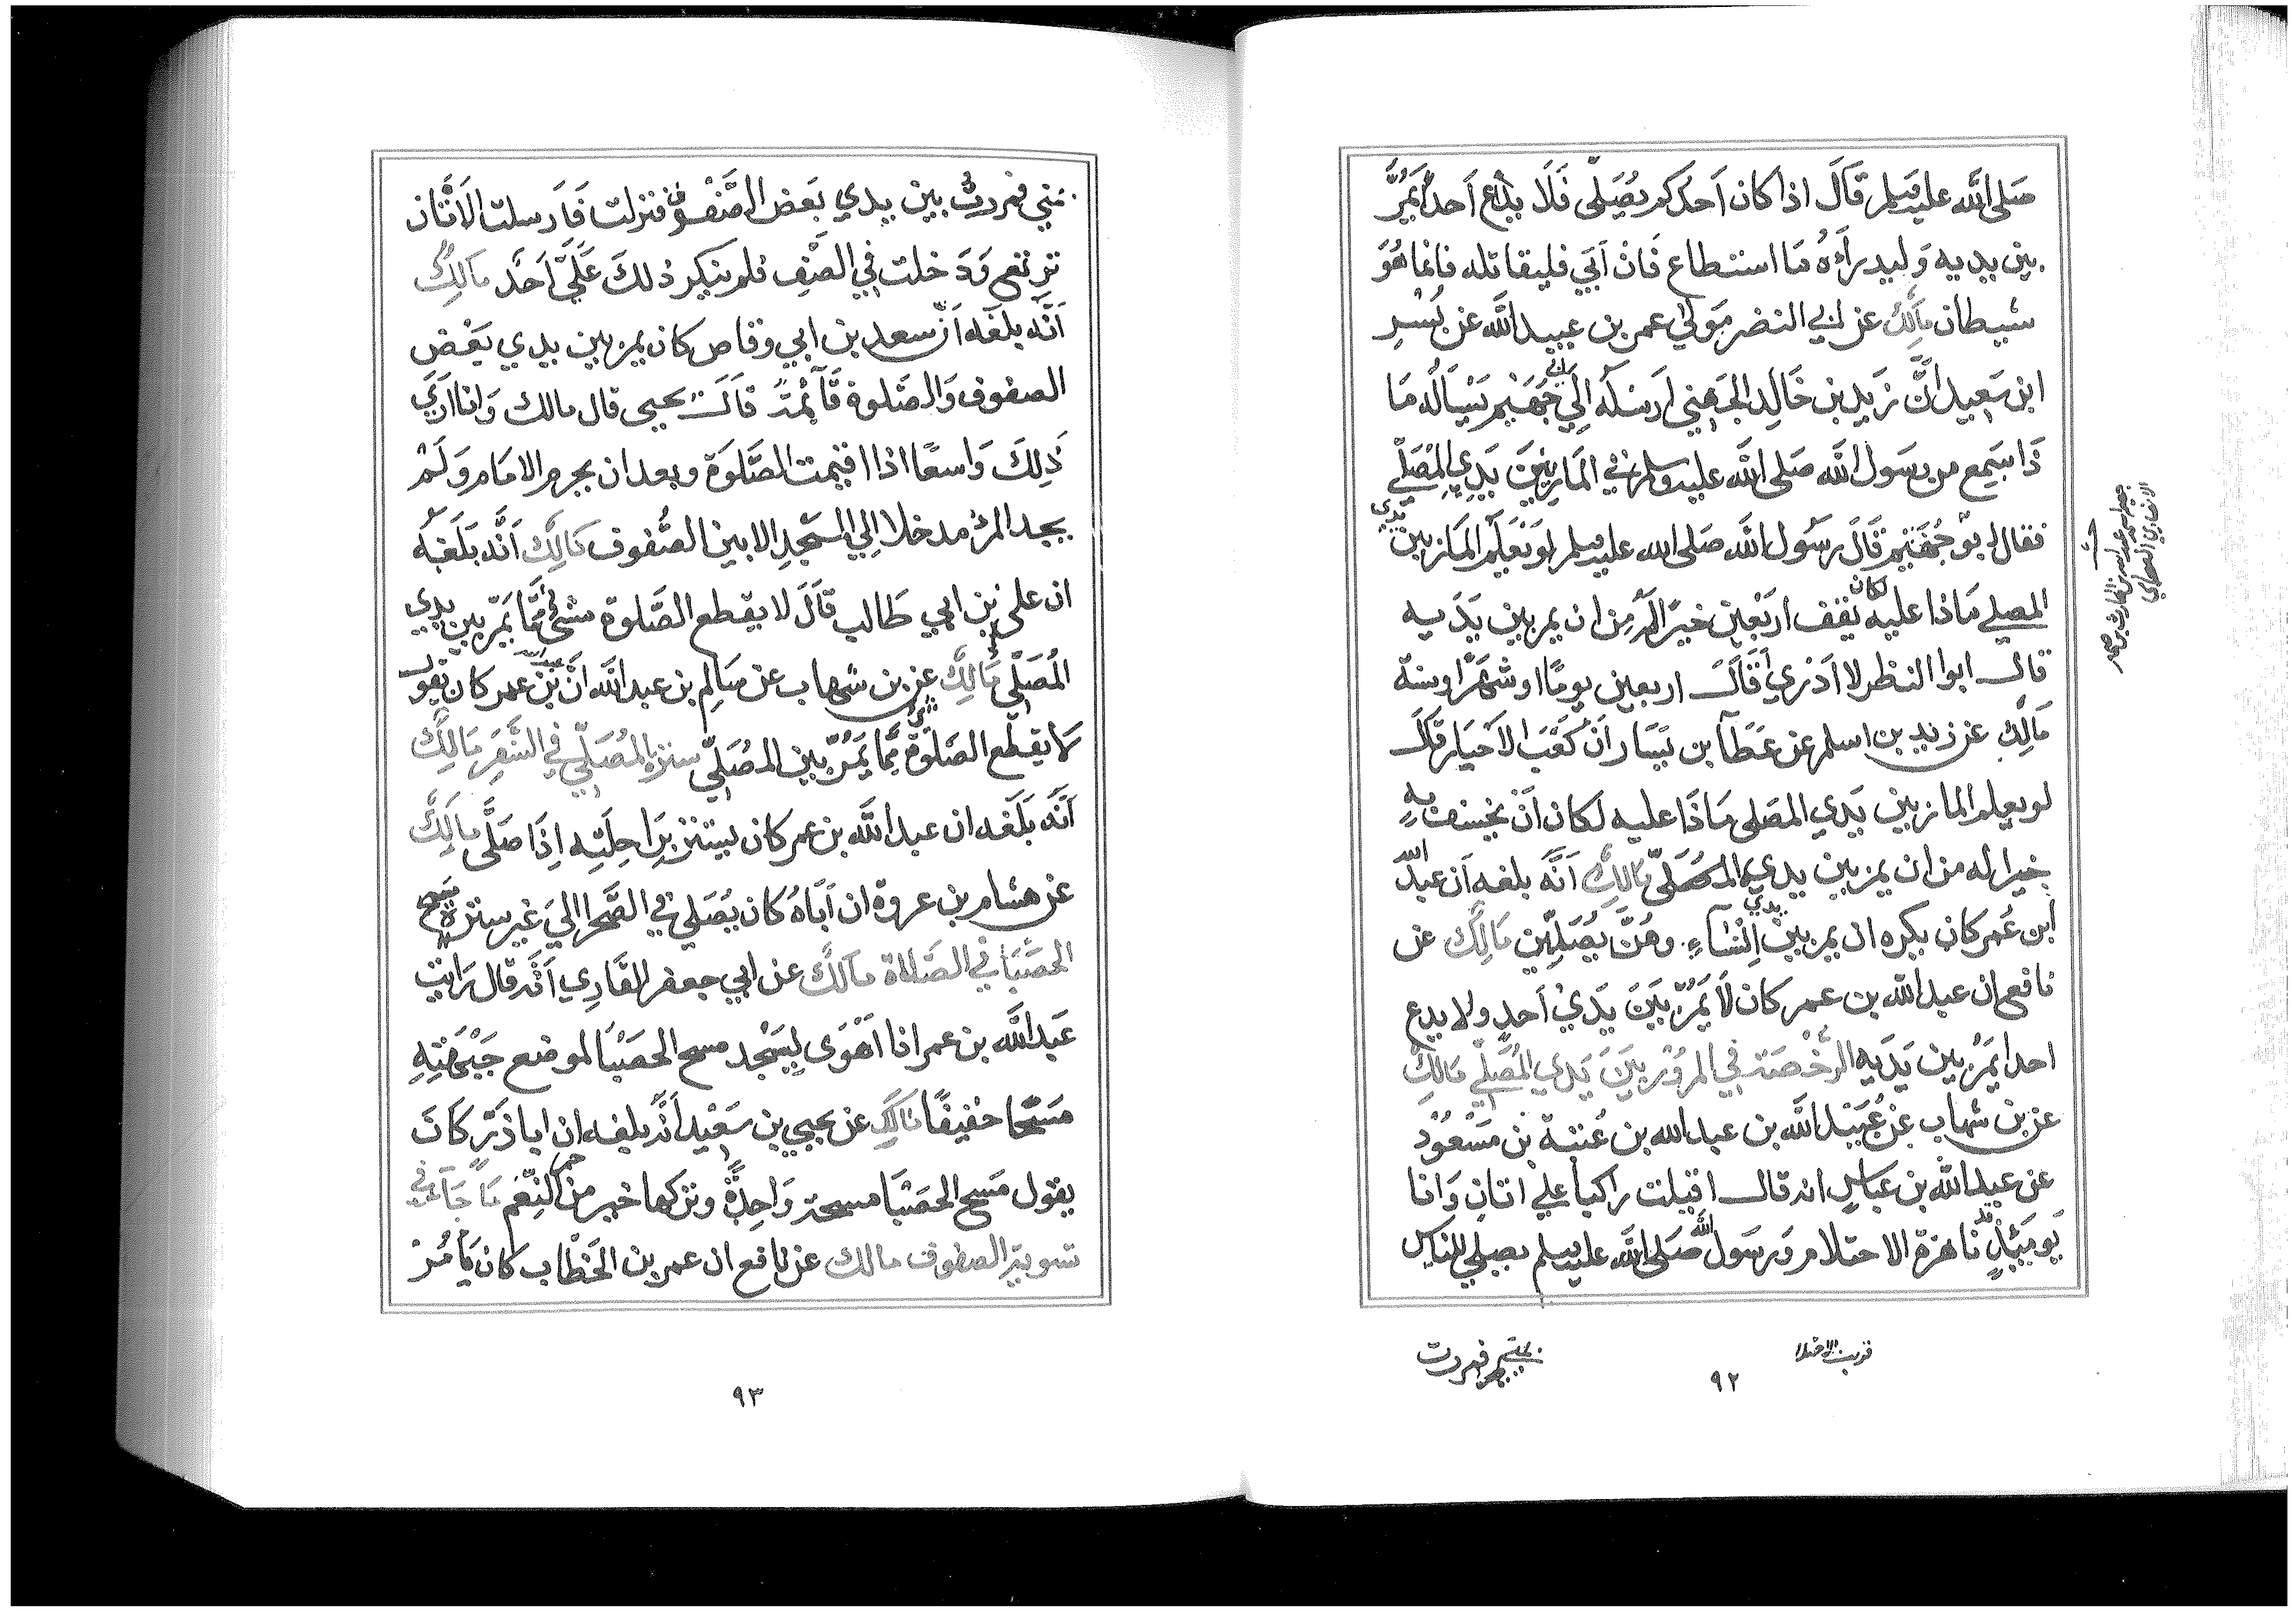 صَلى الله عليه وسلم قَالَ اذا كان اَحدكم يُصَلّي فَلَا يدَع اَحدًا يَمُرُّ
بين يديه وَليدرَاهُ مَا استطاع فَان اَبَي فليقاتله فانما هُوَ
شيطان مالك عن ابي النضر مَولي عمر بن عبيد الله عن بُسْرِ
ابن سَعيد انَّ زيد بن خَالِد الجهني ارسَله الِي ابي جُهَيْم يَسْاَلُه مَا
ذَا سَمِع من رسَول الله صَلى الله عليه وسلم في المَار بَيْنَ يَدَي المُصَلّي
فقال ابو جُهَيْم قَالَ رسَول الله صَلى الله عليه وسلم لو يَعْلم المَار بين يدي
المصلي مَاذا عليه لكان يقف اربَعْين خيرًا لَه مِن ان يمر بين يَدَيه
قال ابوا النظر لا اَدْري اَقَالَ اربعين يومًا او شهرًا او سنة
مَالِك عن زيد بن اسلم عن عَطَآ بن يَسَار اَنّ كَعْبَ الاَحْبَار قَالَ
لو يعلم المار بين يَدَي المصَلي مَاذَا عليه لَكان اَنْ يخسف به
خيرا له من ان يمر بين يدي المصَلّي مَالِك اَنَّه بلغه اَن عبد الله
ابن عُمر كان يكره ان يمر بين يدي النِسَآءِ وهُنَّ يُصَلّين مَالِك عن
نافع ان عبد الله بن عمر كان لَا يَمُرّ بَيْنَ يَدَيْ اَحدٍ ولا يدع
احدا يَمُرّ بين يَدَيه الرّخْصَة في المرُوْر بَيْنَ يَدَي المُصَلّي مَالِك
عن بن شهاب عن عُبَيْد الله بن عبد الله بن عُتبة بن مَسْعُوْد
عن عبد الله بن عباسٍ انه قال اقبلت راكبًا علي اتانٍ وَانا
يَومَئِذٍ قد نَاهزة الاحتلام وَرسَول الله صَلى الله عليه وسلم يصلي للناس
قريب الاحتلام
فمررت
٩٢
بين يدي بَعَض الصَّفوف فنزلت فَارسلت الاَتَان
ترتع وَدَخلت في الصَّفِ فلم ينكر ذلكَ عَلَيَّ اَحَدٌ مَالِك
اَنَّه بلَغَه اَنّ سعد بن ابي وقاص كان يمر بين يدي بَعْض
الصفوف وَالصَّلوة قَآئمة قَالَ يحيي قال مالك وَانا اري
ذلِكَ وَاسعًا اذا اقيمت الصَّلوَة وبعد ان يحرم الامَام وَلَمْ
يجد المرُ مدخلا الِي المسْجدِ الا بين الصُّفوف مَالِك اَنَّه بَلَغَه
ان علي بن ابي طَالب قَالَ لا يقطع الصَّلوة شئٌ مِمَّا يَمّر بين يدي
المُصَلّي مَالِك عن بن شهاب عن سَالِم بن عبد الله اَنَّ عبد الله بن عمر كان يقول
لَا يقطع الصَّلوَة شيٌ مِمَّا يَمُرّ بين المُصَلّي سترة المُصَلّي في السَّفَرِ مَالِك
اَنَّه بَلَغَه ان عبد الله بن عمر كان يستتر بِرَاحِلَتِه اِذَا صَلَّي مَالِك
عن هشام بن عروة ان اَبَاهُ كان يُصَلي في الصَّحرا الِيَ غير سترة مَسْح
الحَصْبَا في الصَّلاة مَالك عن ابي جعفر القَارِي اَنَّه قال رَايت
عَبد الله بن عمر اذا اَهْوَى لِيَسْجُد مسح الحصْبَا لموضع جَبْهَتِهِ
مَسْحًا خفيفًا مَالِك عن يحيي بن سَعْيد اَنَّه بلغه ان ابا ذَرّ كَانَ
يقول مَسح الحَصْبَا مسحة وَاحِدَةً وتركها خير من حمر النّعَم مَا جَاءَ في
تسوية الصفوف مالك عن نافع ان عمر بن الخطّاب كان يَأمُرْ
٩٣